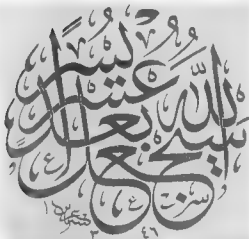 سيجعل الله بعد عسر يسرا